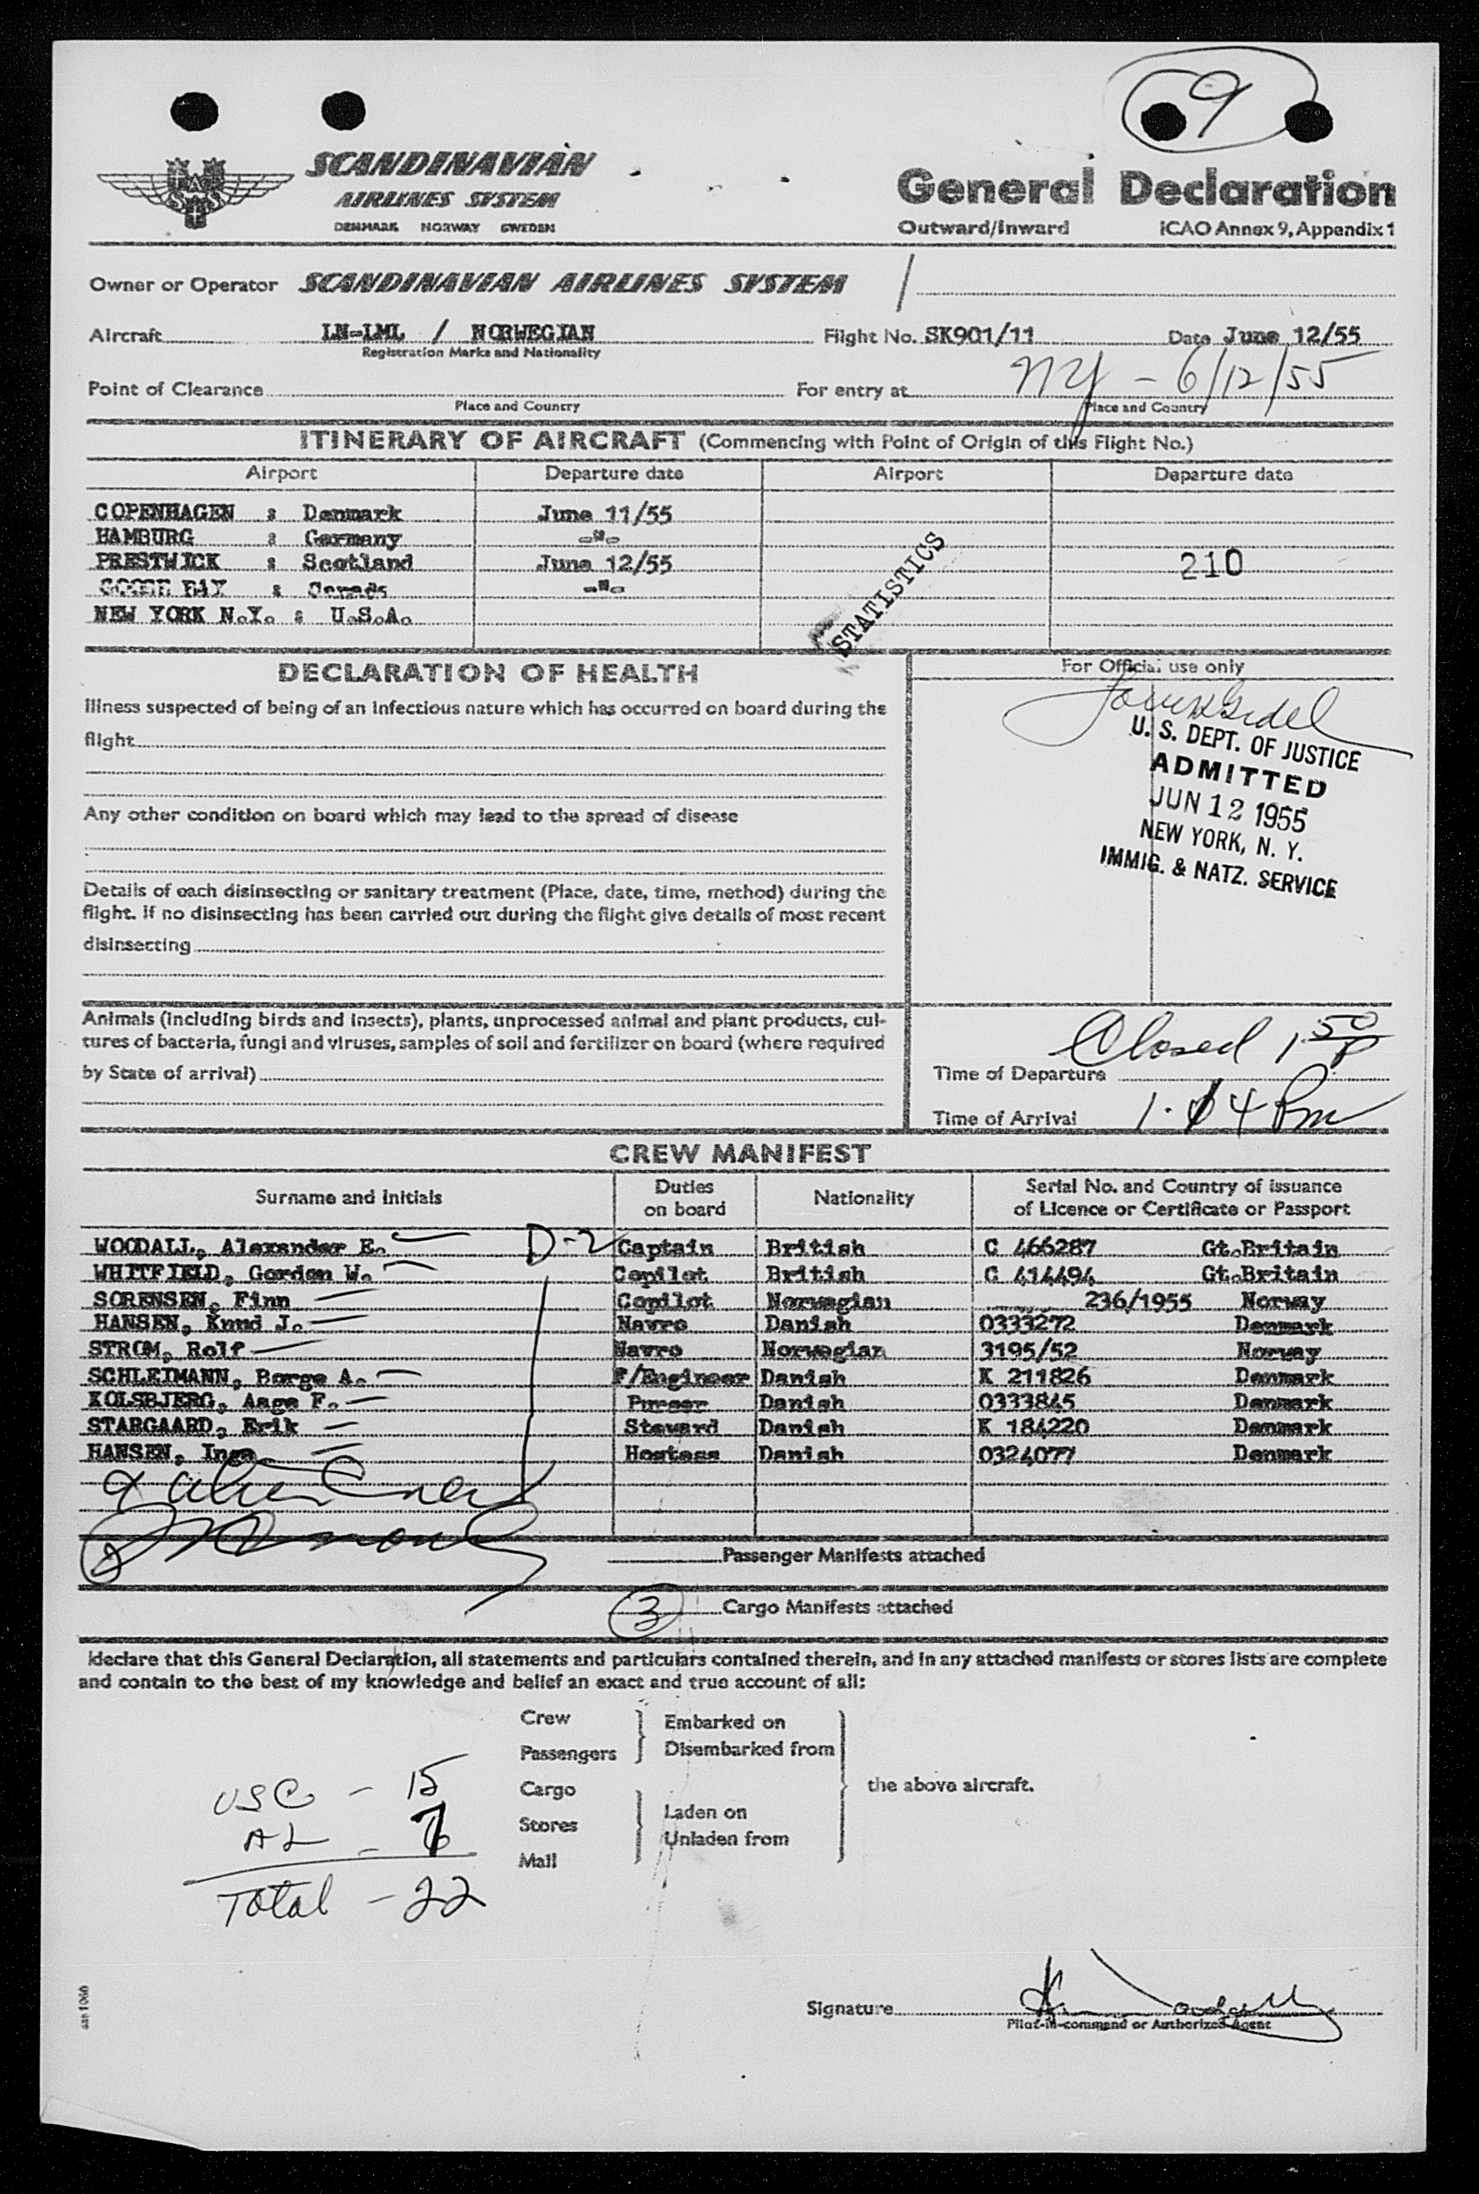 9
SCANDINAVIAN
AIRLINES SYSTEM
DENMARK NORWAY SWEDEN
General Declaration
Outward/Inward ICAO Annex 9, Appendix 1
Owner or Operator SCANDINAVIAN AIRLINES SYSTEM
Aircraft LN-LML / NORWEGIAN Flight No. SK901/11 Date June 12/55
Registration Marks and Nationality
Point of Clearance For entry at NY - 6/12/55
Place and Country Place and Country
ITINERARY OF AIRCRAFT (Commencing with Point of Origin of this Flight No.)
Airport Departure date Airport Departure date
COPENHAGEN : Denmark June 11/55
HAMBURG : Germany -"-
PRESTWICK : Scotland June 12/55 210
GOOSE BAY : Canada -"-
NEW YORK N.Y. : U.S.A.
STATISTICS
DECLARATION OF HEALTH
Illness suspected of being of an infectious nature which has occurred on board during the
flight
Any other condition on board which may lead to the spread of disease
Details of each disinsecting or sanitary treatment (Place, date, time, method) during the
flight. If no disinsecting has been carried out during the flight give details of most recent
disinsecting
For Official use only
U. S. DEPT. OF JUSTICE
ADMITTED
JUN 12 1955
NEW YORK, N. Y.
IMMIG. & NATZ. SERVICE
Animals (including birds and insects), plants, unprocessed animal and plant products, cul-
tures of bacteria, fungi and viruses, samples of soil and fertilizer on board (where required
by State of arrival)
Closed 1 50 P
Time of Departure
Time of Arrival 1.14 Pm
CREW MANIFEST
Surname and initials Duties on board Nationality Serial No. and Country of issuance of Licence or Certificate or Passport
WOODALL, Alexander E. D-2 Captain British C 466287 Gt.Britain
WHITFIELD, Gordon W. Copilot British C 414494 Gt.Britain
SORENSEN, Finn Copilot Norwegian 236/1955 Norway
HANSEN, Knud J. Navro Danish 0333272 Denmark
STROM, Rolf Navro Norwegian 3195/52 Norway
SCHLEIMANN, Borge A. F/Engineer Danish K 211826 Denmark
KOLSBJERG, Aage F. Purser Danish 0333845 Denmark
STARGAARD, Erik Steward Danish K 184220 Denmark
HANSEN, Inge Hostess Danish 0324077 Denmark
9 alien crew
Passenger Manifests attached
3 Cargo Manifests attached
I declare that this General Declaration, all statements and particulars contained therein, and in any attached manifests or stores lists are complete
and contain to the best of my knowledge and belief an exact and true account of all:
Crew
Passengers
Embarked on
Disembarked from
Cargo
Stores
Mail
Laden on
Unladen from
the above aircraft.
USC - 15
AL - 7
Total - 22
Signature
Pilot-in-command or Authorized Agent